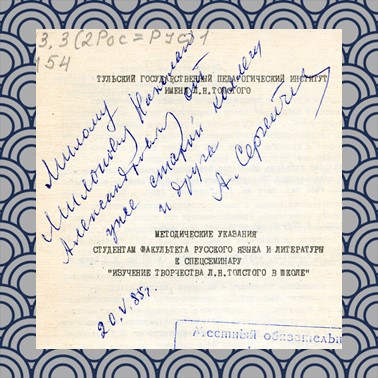 3.3(2Рос=Рус)1
154
ТУЛЬСКИЙ ГОСУДАРСТВЕННЫЙ ПЕДАГОГИЧЕСКИЙ ИНСТИТУТ
ИМЕНИ Л.Н.ТОЛСТОГО
Милому
Милонову Николаю
Александровичу от
уже старой коллеги
и друга
А. Сергейчик
МЕТОДИЧЕСКИЕ УКАЗАНИЯ
СТУДЕНТАМ ФАКУЛЬТЕТА РУССКОГО ЯЗЫКА И ЛИТЕРАТУРЫ
К СПЕЦСЕМИНАРУ
"ИЗУЧЕНИЕ ТВОРЧЕСТВА Л.Н.ТОЛСТОГО В ШКОЛЕ"
20.V.85г.
Местный обязательн